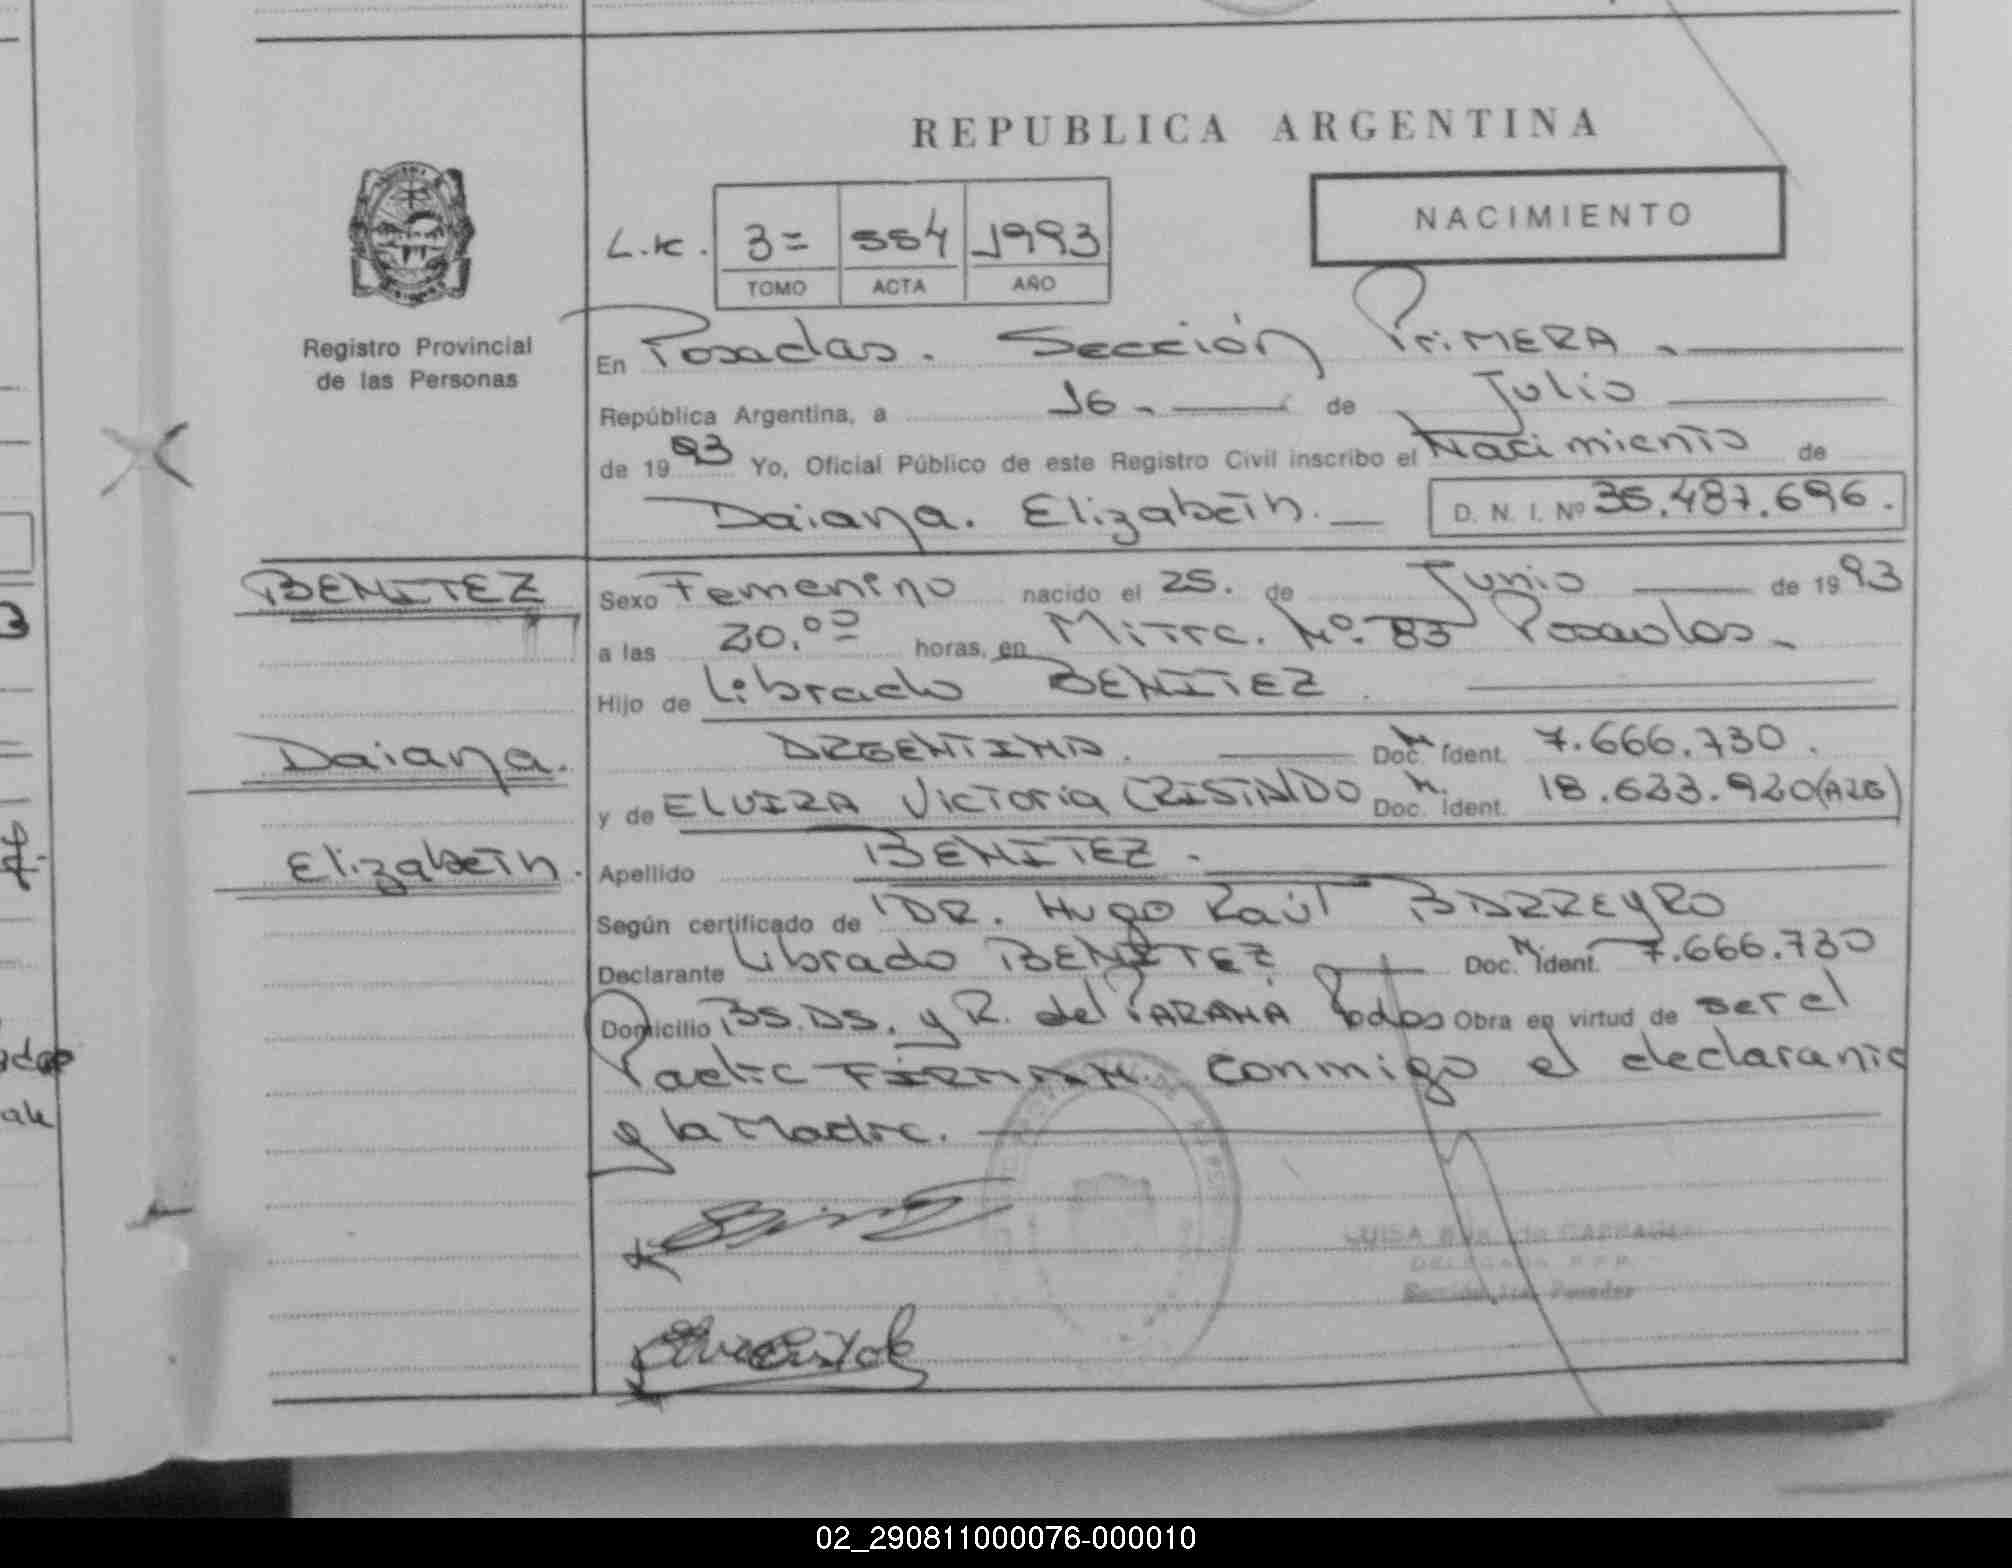 REPUBLICA ARGENTINA
NACIMIENTO
L.K. 3= 554 1993
TOMO ACTA AÑO
Registro Provincial
de las Personas
En Posadas. Sección PriMERA.
República Argentina, a 16. de Julio
de 1993 Yo, Oficial Público de este Registro Civil inscribo el Nacimiento de
Daiana. Elizabeth. D. N. I. Nº 36.487.696.
BENITEZ
Sexo Femenino nacido el 25. de Junio de 1993
a las 20.00 horas, en Mitre. Nº. 83 Posadas
Hijo de Librado BENITEZ
Daiana.
ARGENTINA. Doc. N. Ident. 7.666.730.
y de ELVIRA Victoria CRISTALDO Doc. N. Ident. 18.623.920(ARG)
Elizabeth.
Apellido BENITEZ.
Según certificado de DR. Hugo Raúl BARREYRO
Declarante Librado BENITEZ Doc. N. Ident. 7.666.730
Domicilio BS.AS. y R. del PARANA Podas Obra en virtud de ser el
Padre FIRMAN. conmigo el declarante
y la Madre.
LUISA
DELEGADA R.P.P.
Sección 1ra. Posadas
3
02_290811000076-000010